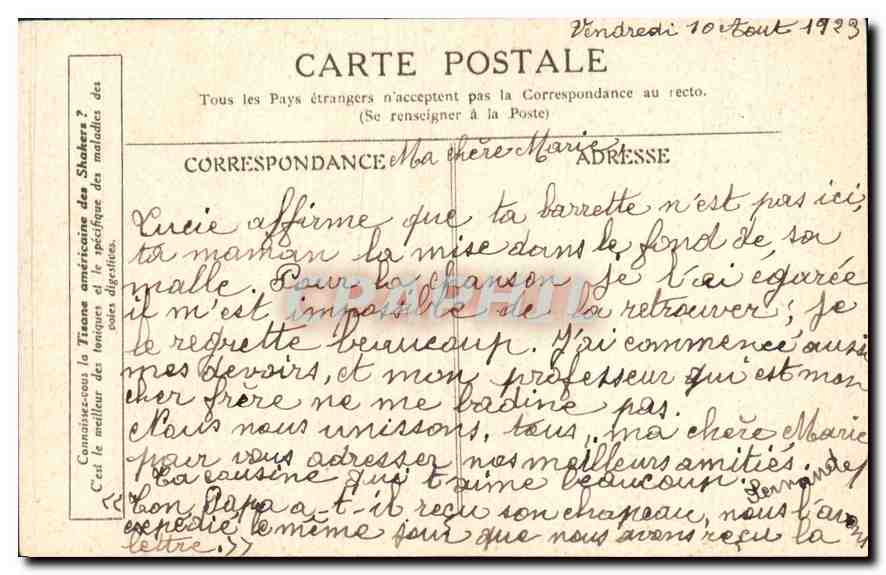 Vendredi 10 Août 1923
CARTE POSTALE
Tous les Pays étrangers n'acceptent pas la Correspondance au recto.
(Se renseigner à la Poste)
CORRESPONDANCE
ADRESSE
Connaissez-vous la Tisane américaine des Shakers ?
C'est le meilleur des toniques et le spécifique des maladies des
voies digestives.
Ma chère Marie,
Lucie affirme que ta barrette n'est pas ici,
ta maman la mise dans le fond de sa
malle. Pour la chanson je l'ai égarée
il m'est impossible de la retrouver ; je
le regrette beaucoup. J'ai commencé aussi
mes devoirs, et mon professeur qui est mon
cher frère ne me badine pas.
Nous nous unissons, tous, ma chère Marie
pour vous adresser nos meilleurs amitiés.
Ta cousine qui t'aime beaucoup. Fernande
«Ton Papa a-t-il reçu son chapeau, nous l'avons
expédié le même jour que nous avons reçu la
lettre.»
CPAPHIL